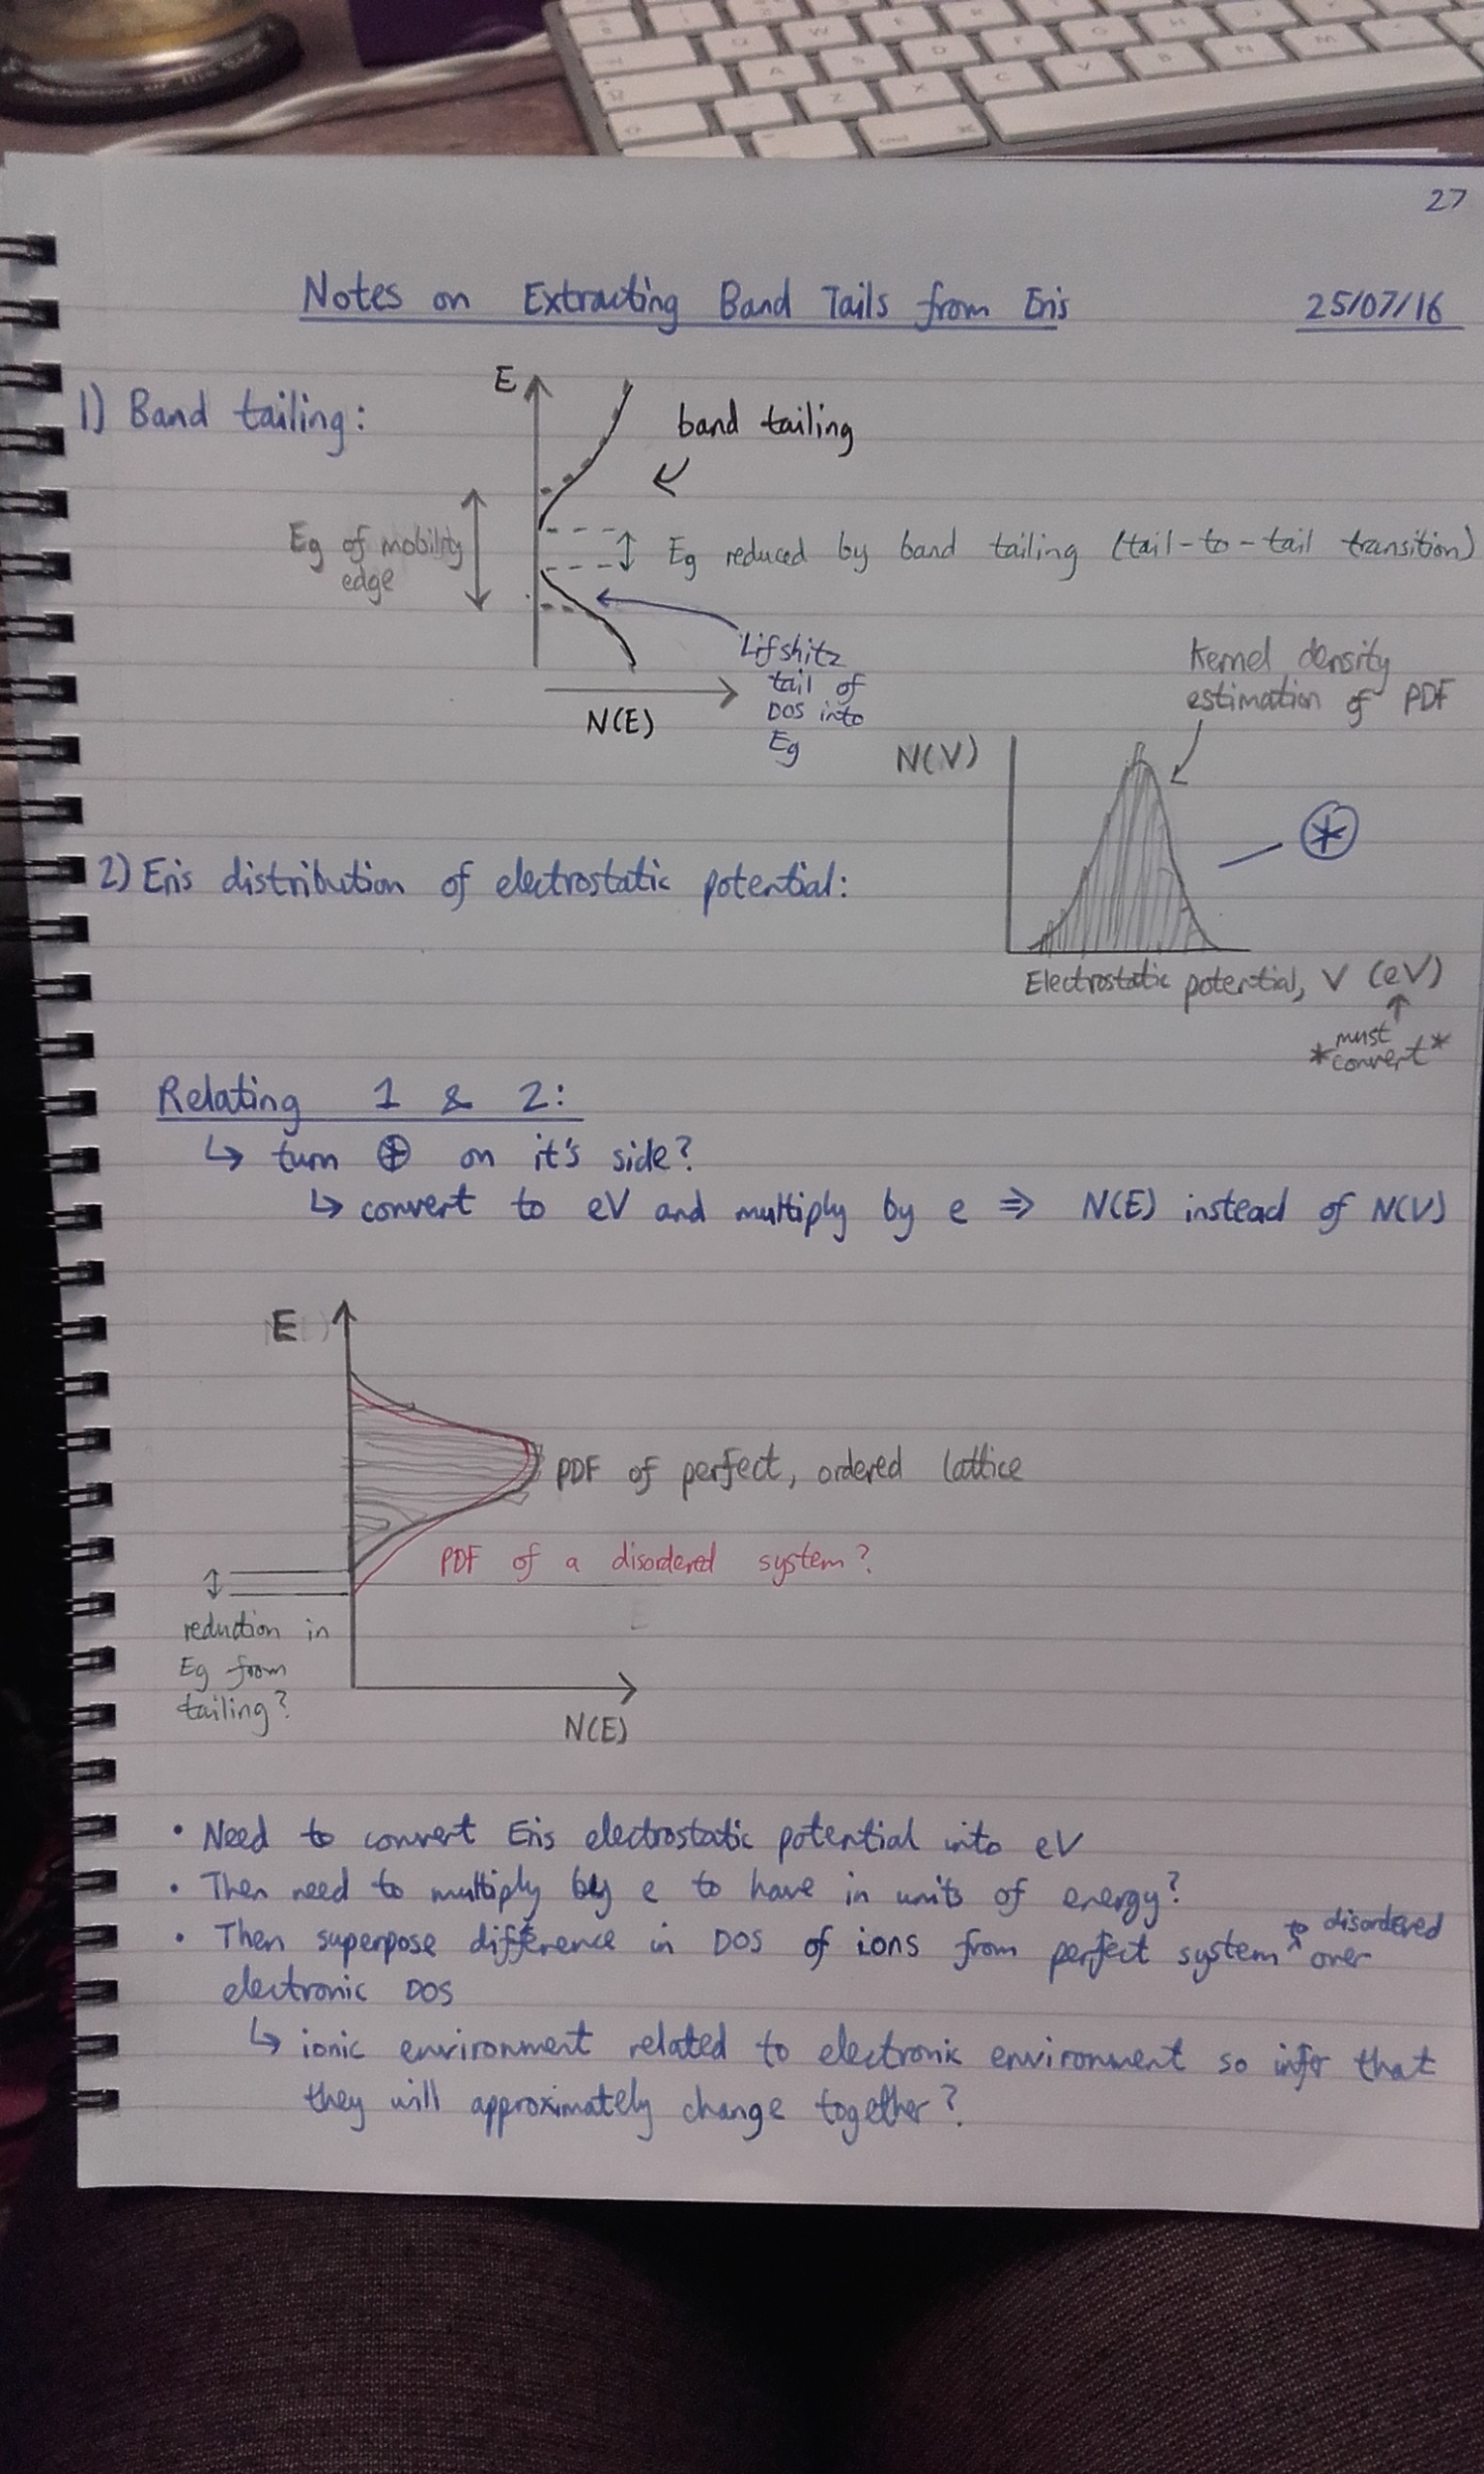 27
Notes on Extracting Band Tails from Eris
25/07/16
1) Band tailing:
E
band tailing
Eg of mobility
edge
Eg reduced by band tailing (tail-to-tail transition)
Lifshitz
tail of
DOS into
Eg
N(E)
Kernel density
estimation of PDF
N(V)
2) Eris distribution of electrostatic potential:
Electrostatic potential, V (eV)
*must
convert*
Relating 1 & 2:
↳ turn ⊛ on it's side?
↳ convert to eV and multiply by e ⇒ N(E) instead of N(V)
E
PDF of perfect, ordered lattice
PDF of a disordered system?
reduction in
Eg from
tailing?
N(E)
• Need to convert Eris electrostatic potential into eV
• Then need to multiply by e to have in units of energy?
• Then superpose difference in DOS of ions from perfect system to disordered over
electronic DOS
↳ ionic environment related to electronic environment so infer that
they will approximately change together?